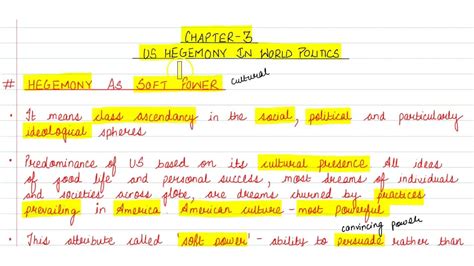 CHAPTER-3
US HEGEMONY IN WORLD POLITICS
# HEGEMONY AS SOFT POWER cultural
• It means class ascendancy in the social, political and particularly
ideological spheres
• Predominance of US based on its cultural presence. All ideas
of good life and personal success, most dreams of individuals
and societies across globe, are dreams churned by practices
prevailing in America. American culture - most powerful
convincing power
• This attribute called 'soft power' - ability to persuade rather than